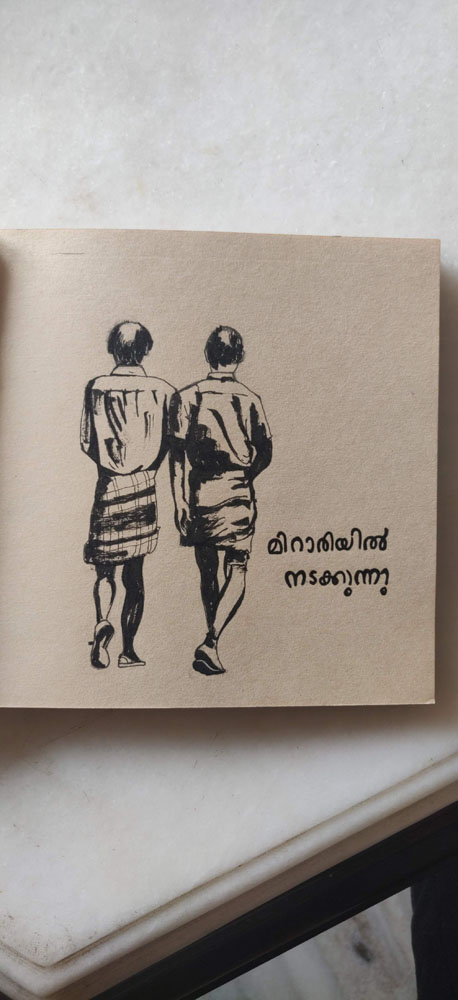 മിറാരിയിൽ
നടക്കുന്നു